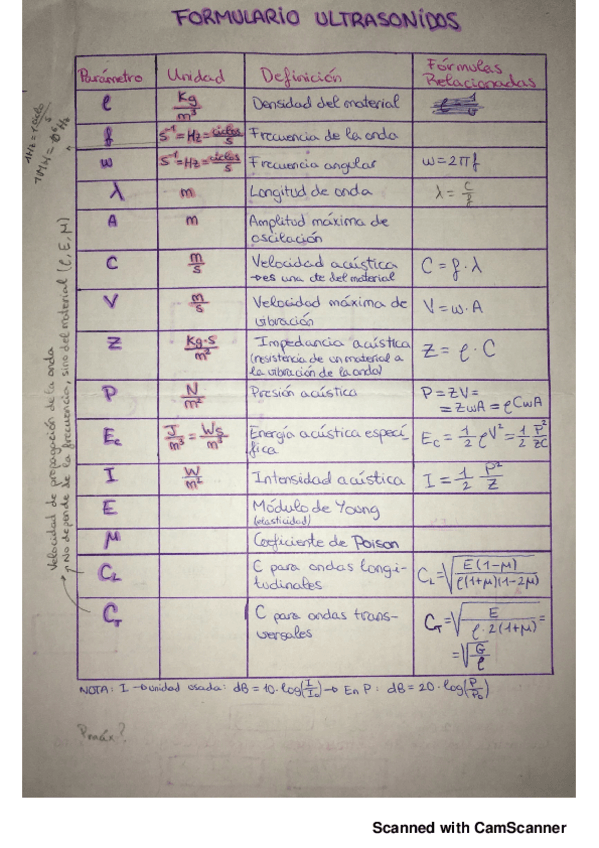 FORMULARIO ULTRASONIDOS
Parámetro Unidad Definición Fórmulas Relacionadas
ρ Kg/m³ Densidad del material
f s⁻¹ = Hz = ciclos/s Frecuencia de la onda
ω s⁻¹ = Hz = ciclos/s Frecuencia angular ω = 2πf
λ m Longitud de onda λ = C/f
A m Amplitud máxima de
oscilación
C m/s Velocidad acústica C = f·λ
→ es una cte del material
V m/s Velocidad máxima de V = ω·A
vibración
Z Kg·s/m² Impedancia acústica Z = ρ·C
(resistencia de un material a
la vibración de la onda)
P N/m² Presión acústica P = ZV =
= ZωA = ρCωA
Ec J/m³ = Ws/m³ Energía acústica especí- Ec = 1/2 ρV² = 1/2 P²/ZC
fica
I W/m² Intensidad acústica I = 1/2 P²/Z
E Módulo de Young
(elasticidad)
μ Coeficiente de Poison
CL C para ondas longi- CL = √(E(1-μ)/ρ(1+μ)(1-2μ))
tudinales
CT C para ondas trans- CT = √(E/ρ·2(1+μ)) =
versales = √(G/ρ)
NOTA: I → unidad usada: dB = 10·log(I/I₀) → En P: dB = 20·log(P/P₀)
Pmáx?
1Hz = 1 ciclo/s
1MHz = 10⁶ Hz
Velocidad de propagación de la onda
No depende de la frecuencia, sino del material (ρ, E, μ)
Scanned with CamScanner